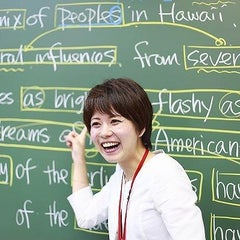 mix of peoples in Hawaii.
ral influences, from sever
es as brig flashy as
reams a American
of the worl have
of the